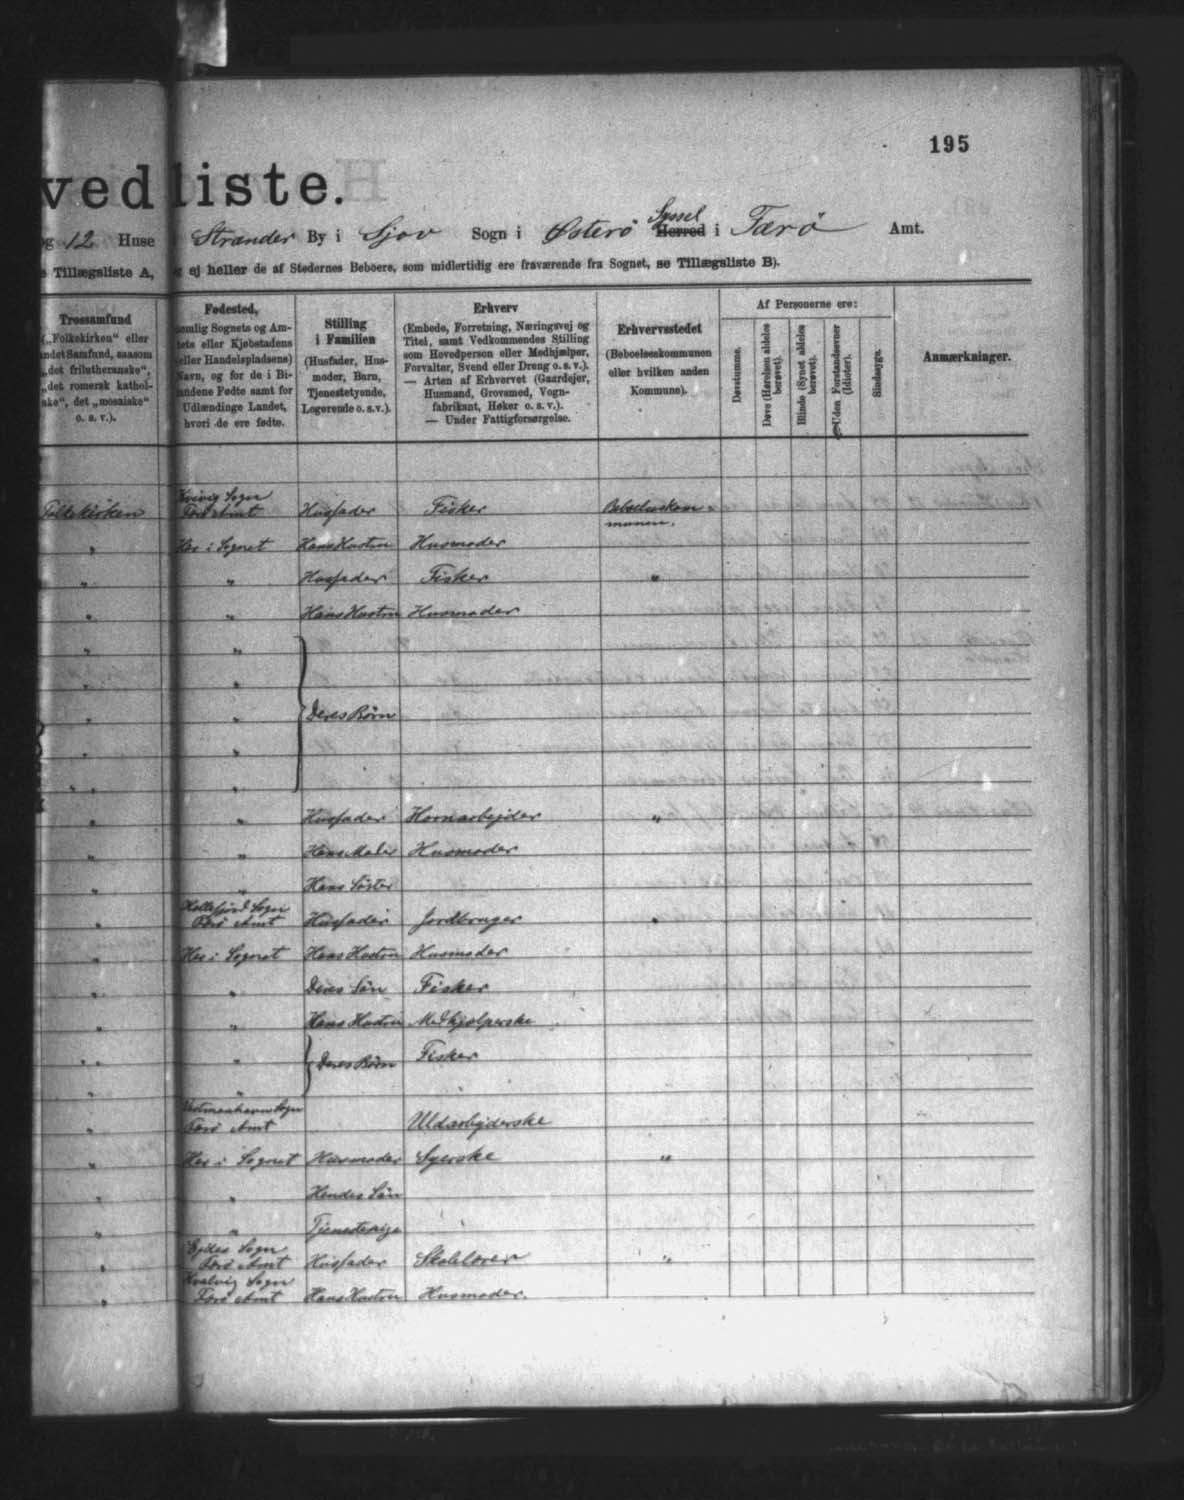 195
vedliste.
og 12 Huse i Strander By i Sjov Sogn i Østerø Syssel Herred i Færø Amt.
e Tillægsliste A, og ej heller de af Stedernes Beboere, som midlertidig ere fraværende fra Sognet, se Tillægsliste B).
Trossamfund
(„Folkekirken“ eller
andet Samfund, saasom
„det frilutheranske“,
„det romersk kathol-
ske“, det „mosaiske“
o. s. v.).
Fødested,
nemlig Sognets og Am-
tets eller Kjøbstadens
(eller Handelspladsens)
Navn, og for de i Bi-
landene Fødte samt for
Udlændinge Landet,
hvori de ere fødte.
Stilling
i Familien
(Husfader, Hus-
moder, Barn,
Tjenestetyende,
Logerende o.s.v.).
Erhverv
(Embede, Forretning, Næringsvej og
Titel, samt Vedkommendes Stilling
som Hovedperson eller Medhjælper,
Forvalter, Svend eller Dreng o. s. v.).
— Arten af Erhvervet (Gaardejer,
Husmand, Grovsmed, Vogn-
fabrikant, Høker o. s. v.).
— Under Fattigforsørgelse.
Erhvervsstedet
(Beboelseskommunen
eller hvilken anden
Kommune).
Af Personerne ere:
Døvstumme.
Døve (Hørelsen aldeles
berøvet).
Blinde (Synet aldeles
berøvet).
Uden Forstandsevner
(Idioter).
Sindssyge.
Anmærkninger.
Kvivig Sogn
Folkekirken Færø Amt Husfader Fisker Beboelseskom-
munen.
„ Her i Sognet Hans Hustru Husmoder
„ „ Husfader Fisker „
„ „ Hans Hustru Husmoder
„ „
„ „
„ „ Deres Børn
„ „
„ „
„ „ Husfader Hornarbejder „
„ „ Hans Moder Husmoder
„ „ Hans Søster
Kollefjord Sogn
„ Færø Amt Husfader Jordbruger „
„ Her i Sognet Hans Hustru Husmoder
„ „ Deres Søn Fisker
„ „ Hans Hustru Medhjælperske
„ „ Deres Børn Fisker
„ „
Vestmanhavn Sogn
„ Færø Amt Uldarbejderske
„ Her i Sognet Husmoder Syerske „
„ „ Hendes Søn
„ „ Tjenestepige
Ejdes Sogn
„ Færø Amt Husfader Skolelærer „
Kvalvig Sogn
„ Færø Amt Hans Hustru Husmoder.